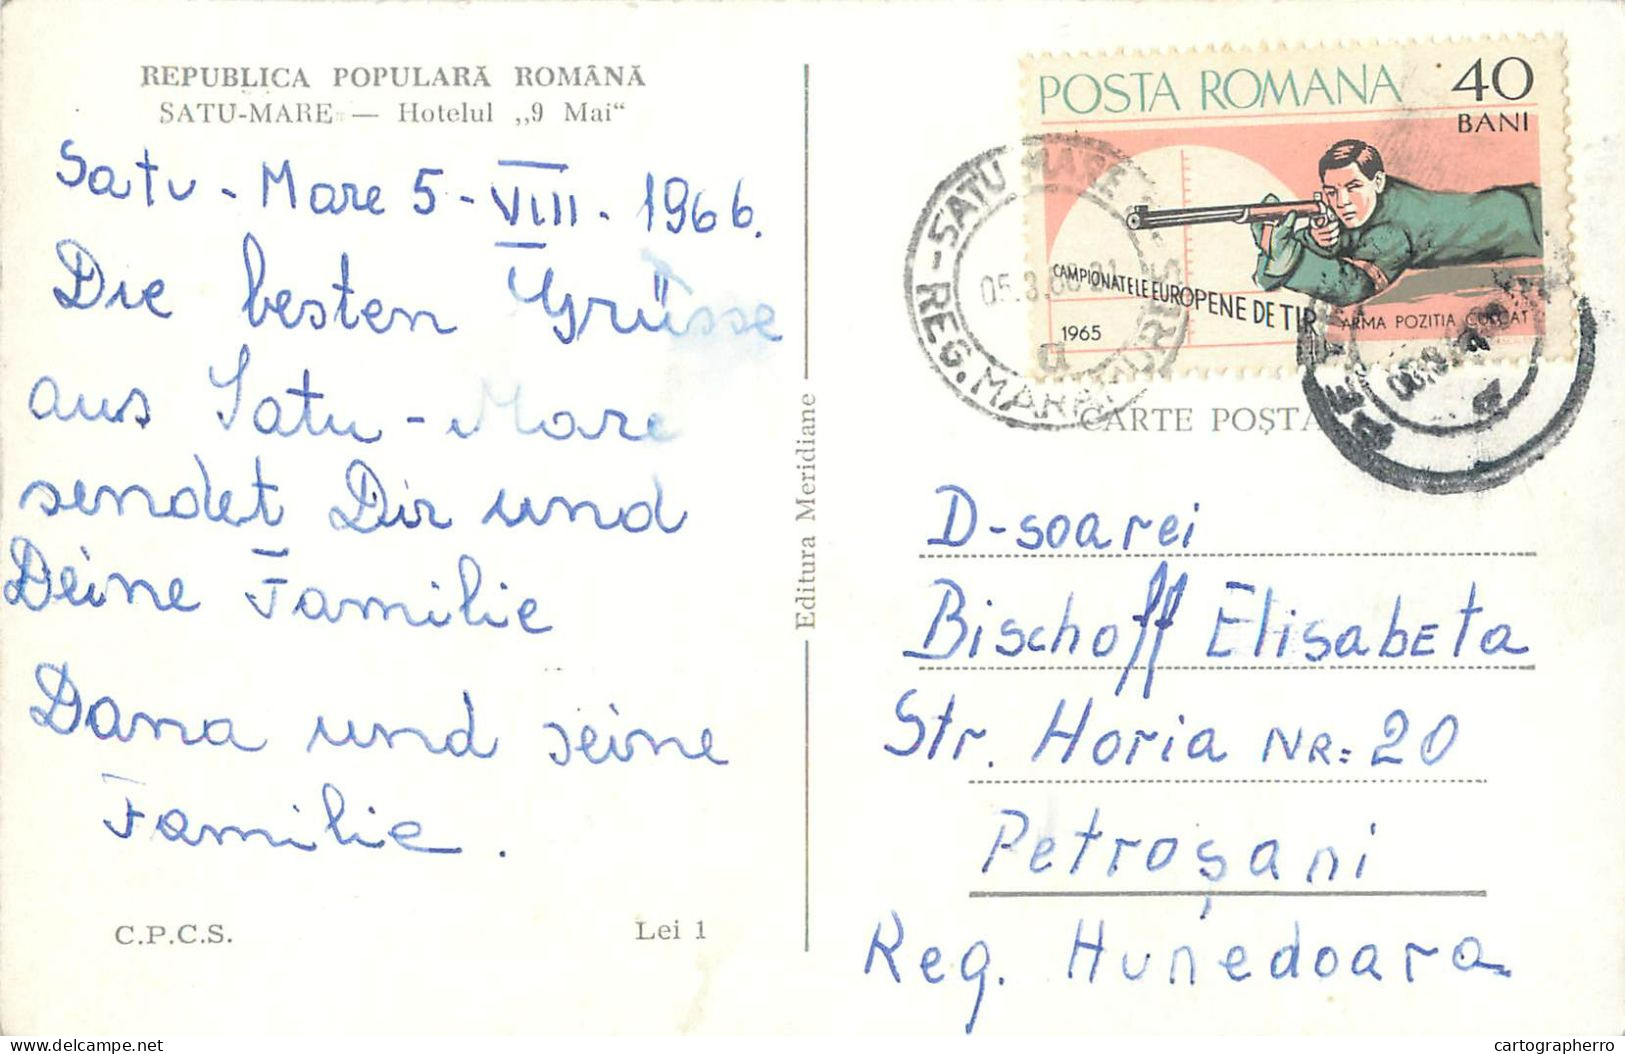 REPUBLICA POPULARĂ ROMÂNĂ
SATU-MARE — Hotelul „9 Mai“
Satu - Mare 5 - VIII - 1966.
Die besten Grüsse
aus Satu - Mare
sendet Dir und
Deine Familie
Dana und seine
Familie.
C.P.C.S.
Lei 1
Editura Meridiane
POSTA ROMANA 40
BANI
CAMPIONATELE EUROPENE DE TIR
1965
ARMA POZITIA CULCAT
SATU MARE
REG. MARAMUREȘ
CARTE POȘTA
D-soarei
Bischoff Elisabeta
Str. Horia NR: 20
Petroșani
Reg. Hunedoara
delcampe.net
cartographerro